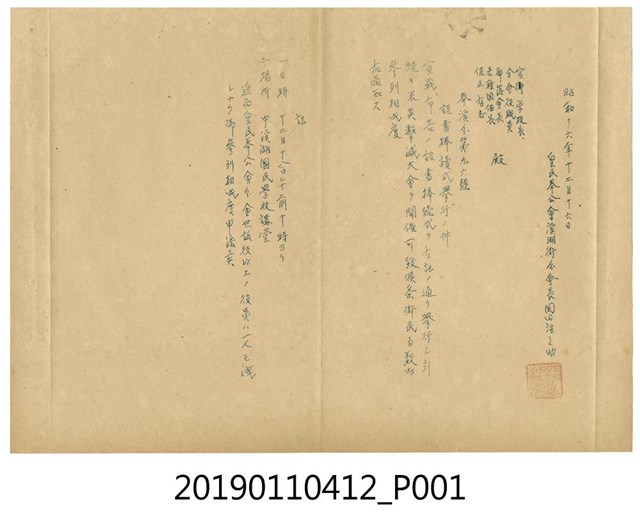 昭和十六年十二月十六日
皇民奉公會溪湖街分會長
官衙學校長
分會役職員
部落會長
各種團体長
保正
殿
奉溪分第九六號
詔書捧讀式擧行ノ件
宣戰布告ノ詔書捧讀式ヲ左記ノ通リ擧行シ引
續キ米英擊滅大會ヲ開催可致候条街民多數
參列相成度
右通知ス
記
一日時 十二月十八日午前十時ヨリ
一場所 溪湖國民學校講堂
追而皇民奉公會分會世話役以上ノ役員ハ一人モ
御參列相成度申添
20190110412_P001